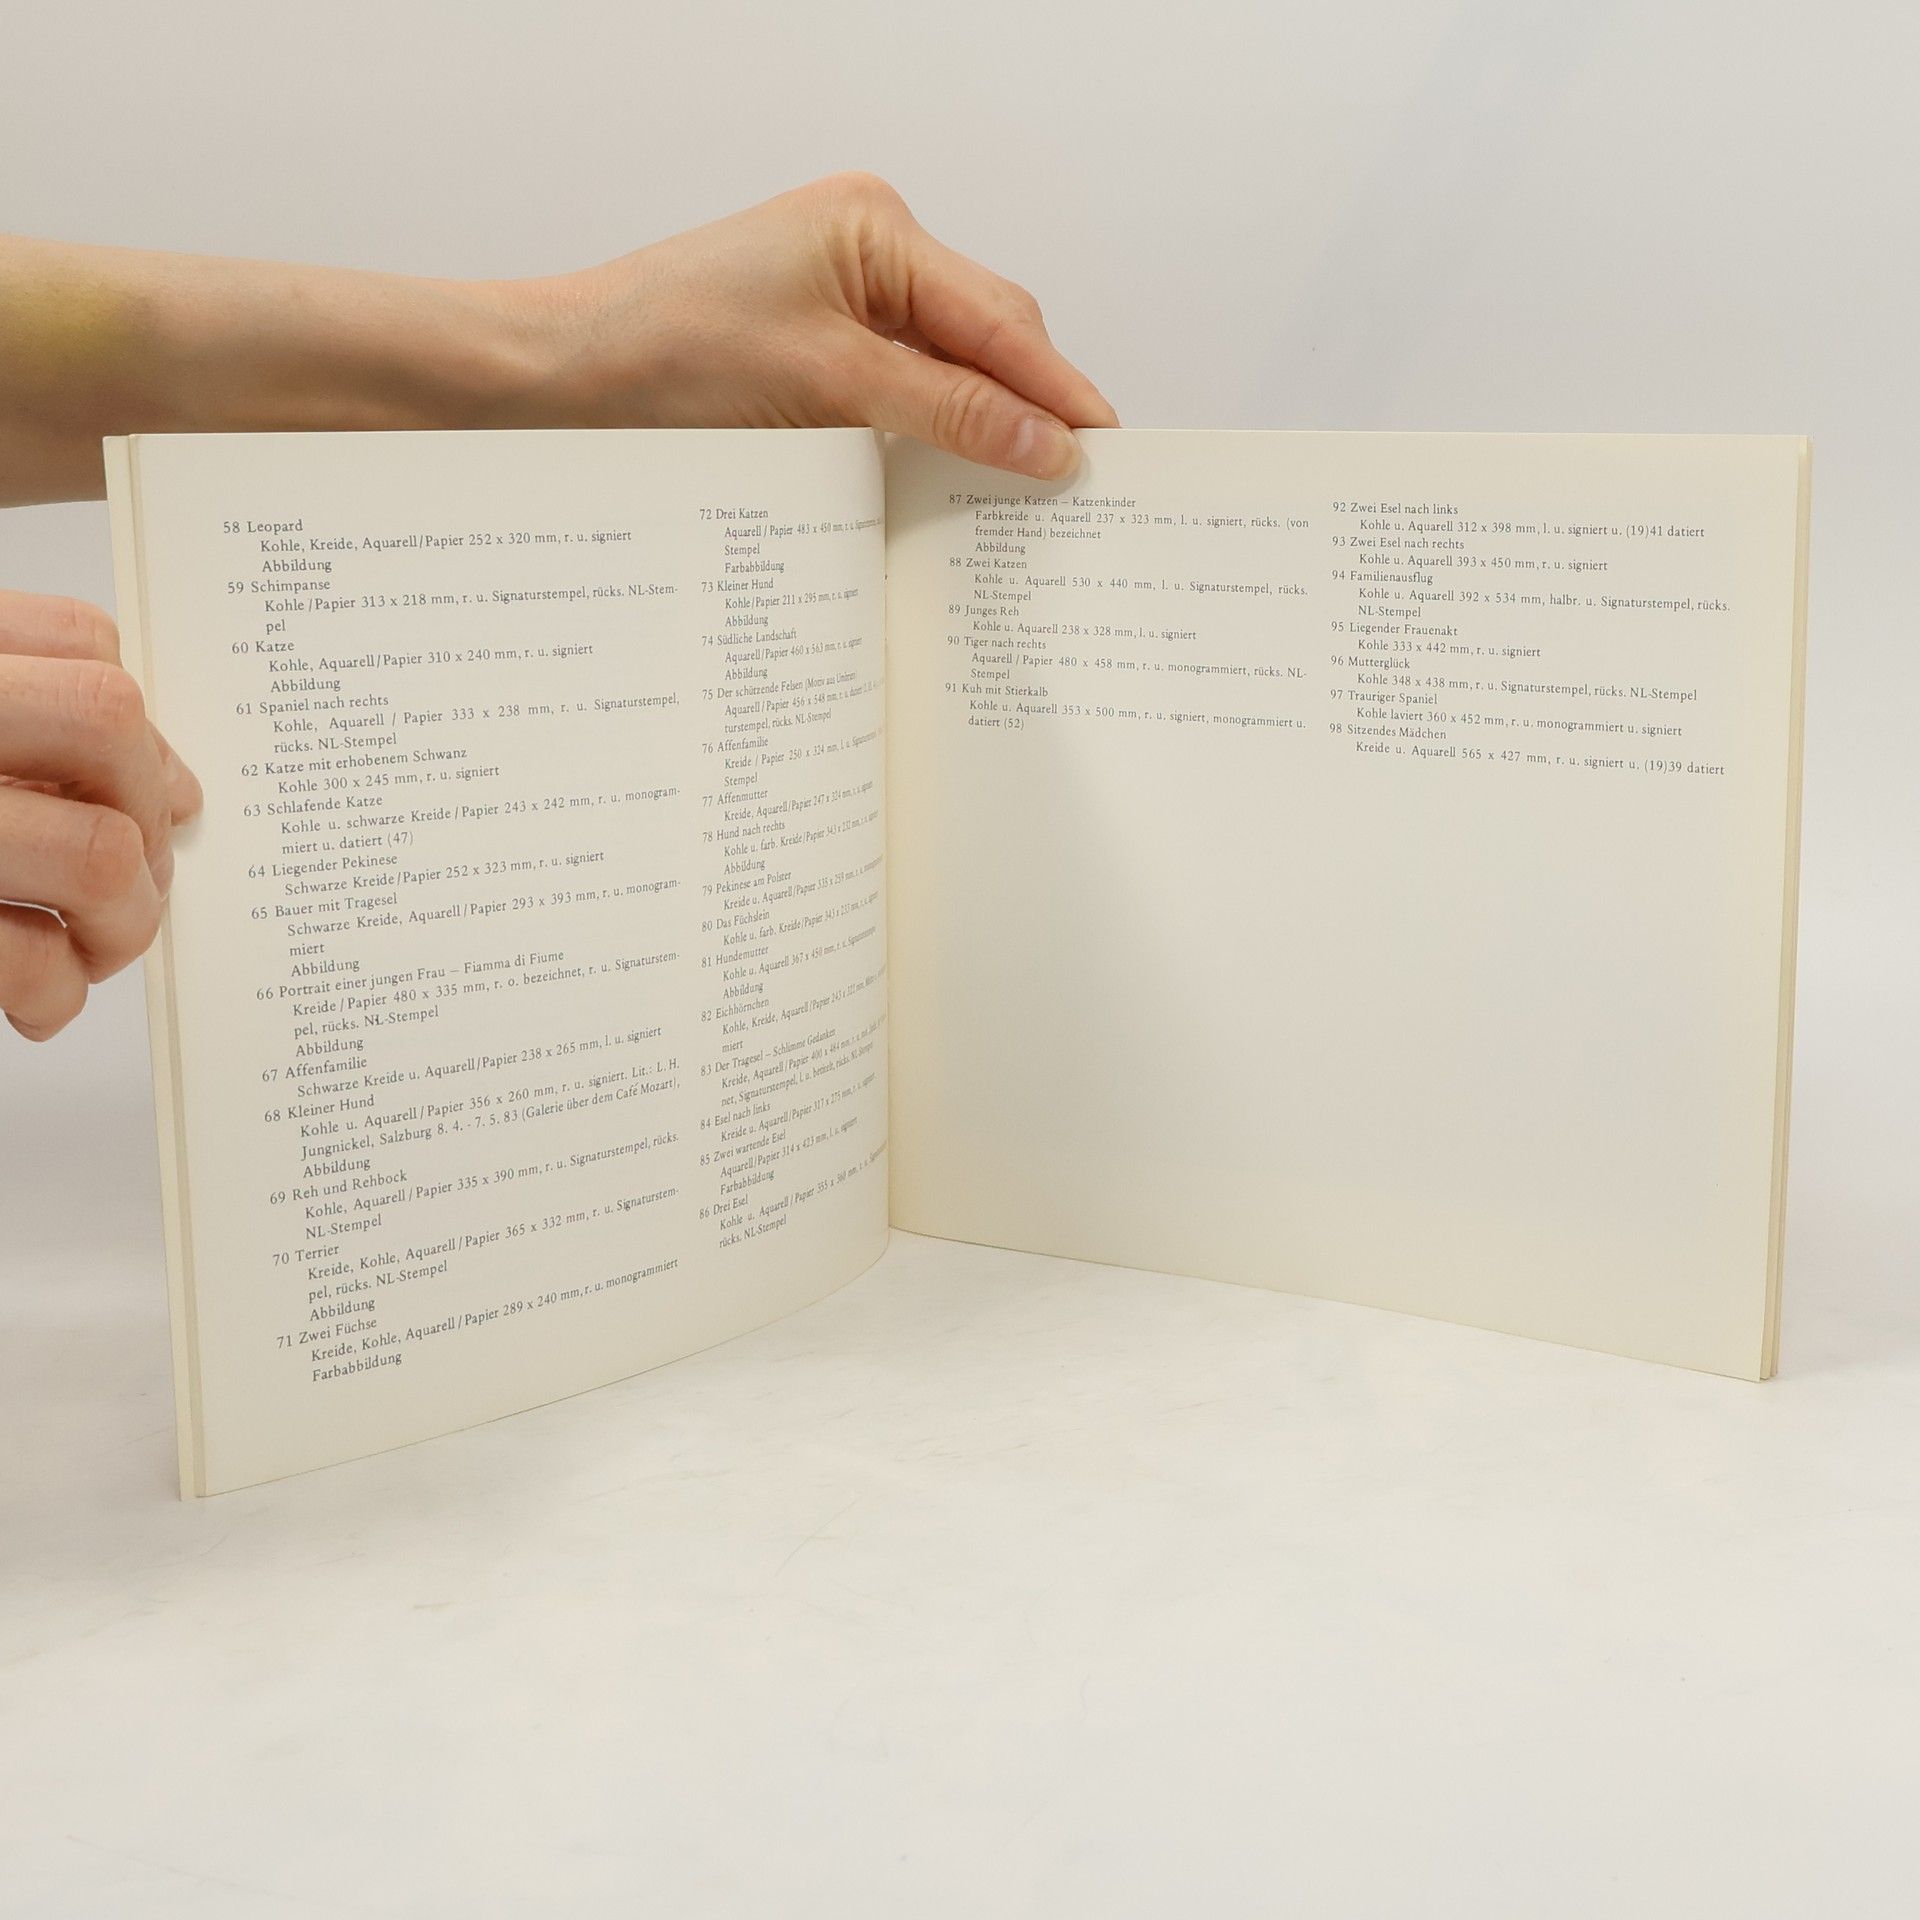 58 Leopard
Kohle, Kreide, Aquarell/Papier 252 x 320 mm, r. u. signiert
Abbildung
59 Schimpanse
Kohle/Papier 313 x 218 mm, r. u. Signaturstempel, rücks. NL-Stem-
pel
60 Katze
Kohle, Aquarell/Papier 310 x 240 mm, r. u. signiert
Abbildung
61 Spaniel nach rechts
Kohle, Aquarell / Papier 333 x 238 mm, r. u. Signaturstempel,
rücks. NL-Stempel
62 Katze mit erhobenem Schwanz
Kohle 300 x 245 mm, r. u. signiert
63 Schlafende Katze
Kohle u. schwarze Kreide/Papier 243 x 242 mm, r. u. monogram-
miert u. datiert (47)
64 Liegender Pekinese
Schwarze Kreide/Papier 252 x 323 mm, r. u. signiert
65 Bauer mit Tragesel
Schwarze Kreide, Aquarell/Papier 293 x 393 mm, r. u. monogram-
miert
Abbildung
66 Portrait einer jungen Frau – Fiamma di Fiume
Kreide/Papier 480 x 335 mm, r. o. bezeichnet, r. u. Signaturstem-
pel, rücks. NL-Stempel
Abbildung
67 Affenfamilie
Schwarze Kreide u. Aquarell/Papier 238 x 265 mm, l. u. signiert
68 Kleiner Hund
Kohle u. Aquarell/Papier 356 x 260 mm, r. u. signiert. Lit.: L. H.
Jungnickel, Salzburg 8. 4. - 7. 5. 83 (Galerie über dem Café Mozart),
Abbildung
69 Reh und Rehbock
Kohle, Aquarell/Papier 335 x 390 mm, r. u. Signaturstempel, rücks.
NL-Stempel
70 Terrier
Kreide, Kohle, Aquarell/Papier 365 x 332 mm, r. u. Signaturstem-
pel, rücks. NL-Stempel
Abbildung
71 Zwei Füchse
Kreide, Kohle, Aquarell/Papier 289 x 240 mm, r. u. monogrammiert
Farbabbildung
72 Drei Katzen
Aquarell/Papier 483 x 450 mm, r. u.
Stempel
Farbabbildung
73 Kleiner Hund
Kohle/Papier 211 x 295 mm, r. u. signiert
Abbildung
74 Südliche Landschaft
Aquarell/Papier 460 x 563 mm, r. u. signiert
Abbildung
75 Der schützende Felsen (Motiv aus Umbrien)
Aquarell/Papier 456 x 548 mm, r. u. datiert
turstempel, rücks. NL-Stempel
76 Affenfamilie
Kreide / Papier 250 x 324 mm, l. u.
Stempel
77 Affenmutter
Kreide, Aquarell/Papier 247 x 324 mm, r. u. signiert
78 Hund nach rechts
Kohle u. farb. Kreide/Papier 343 x 232 mm, r. u. signiert
Abbildung
79 Pekinese am Polster
Kreide u. Aquarell/Papier 335 x 259 mm, r. u.
80 Das Füchslein
Kohle u. farb. Kreide/Papier 343 x 233 mm, r. u. signiert
81 Hundemutter
Kohle u. Aquarell 367 x 450 mm, r. u. Signaturstempel
Abbildung
82 Eichhörnchen
Kohle, Kreide, Aquarell/Papier 243 x 321 mm,
miert
83 Der Tragesel – Schlimme Gedanken
Kreide, Aquarell/Papier 400 x 484 mm, r. u.
net, Signaturstempel, l. u. betitelt, rücks. NL-Stempel
84 Esel nach links
Kreide u. Aquarell/Papier 317 x 275 mm, r. u. signiert
85 Zwei wartende Esel
Aquarell/Papier 314 x 423 mm, l. u. signiert
Farbabbildung
86 Drei Esel
Kohle u. Aquarell / Papier 355 x 360 mm, r. u.
rücks. NL-Stempel
87 Zwei junge Katzen – Katzenkinder
Farbkreide u. Aquarell 237 x 323 mm, l. u. signiert, rücks. (von
fremder Hand) bezeichnet
Abbildung
88 Zwei Katzen
Kohle u. Aquarell 530 x 440 mm, l. u. Signaturstempel, rücks.
NL-Stempel
89 Junges Reh
Kohle u. Aquarell 238 x 328 mm, l. u. signiert
90 Tiger nach rechts
Aquarell/Papier 480 x 458 mm, r. u. monogrammiert, rücks. NL-
Stempel
91 Kuh mit Stierkalb
Kohle u. Aquarell 353 x 500 mm, r. u. signiert, monogrammiert u.
datiert (52)
92 Zwei Esel nach links
Kohle u. Aquarell 312 x 398 mm, l. u. signiert u. (19)41 datiert
93 Zwei Esel nach rechts
Kohle u. Aquarell 393 x 450 mm, r. u. signiert
94 Familienausflug
Kohle u. Aquarell 392 x 534 mm, halbr. u. Signaturstempel, rücks.
NL-Stempel
95 Liegender Frauenakt
Kohle 333 x 442 mm, r. u. signiert
96 Mutterglück
Kohle 348 x 438 mm, r. u. Signaturstempel, rücks. NL-Stempel
97 Trauriger Spaniel
Kohle laviert 360 x 452 mm, r. u. monogrammiert u. signiert
98 Sitzendes Mädchen
Kreide u. Aquarell 565 x 427 mm, r. u. signiert u. (19)39 datiert